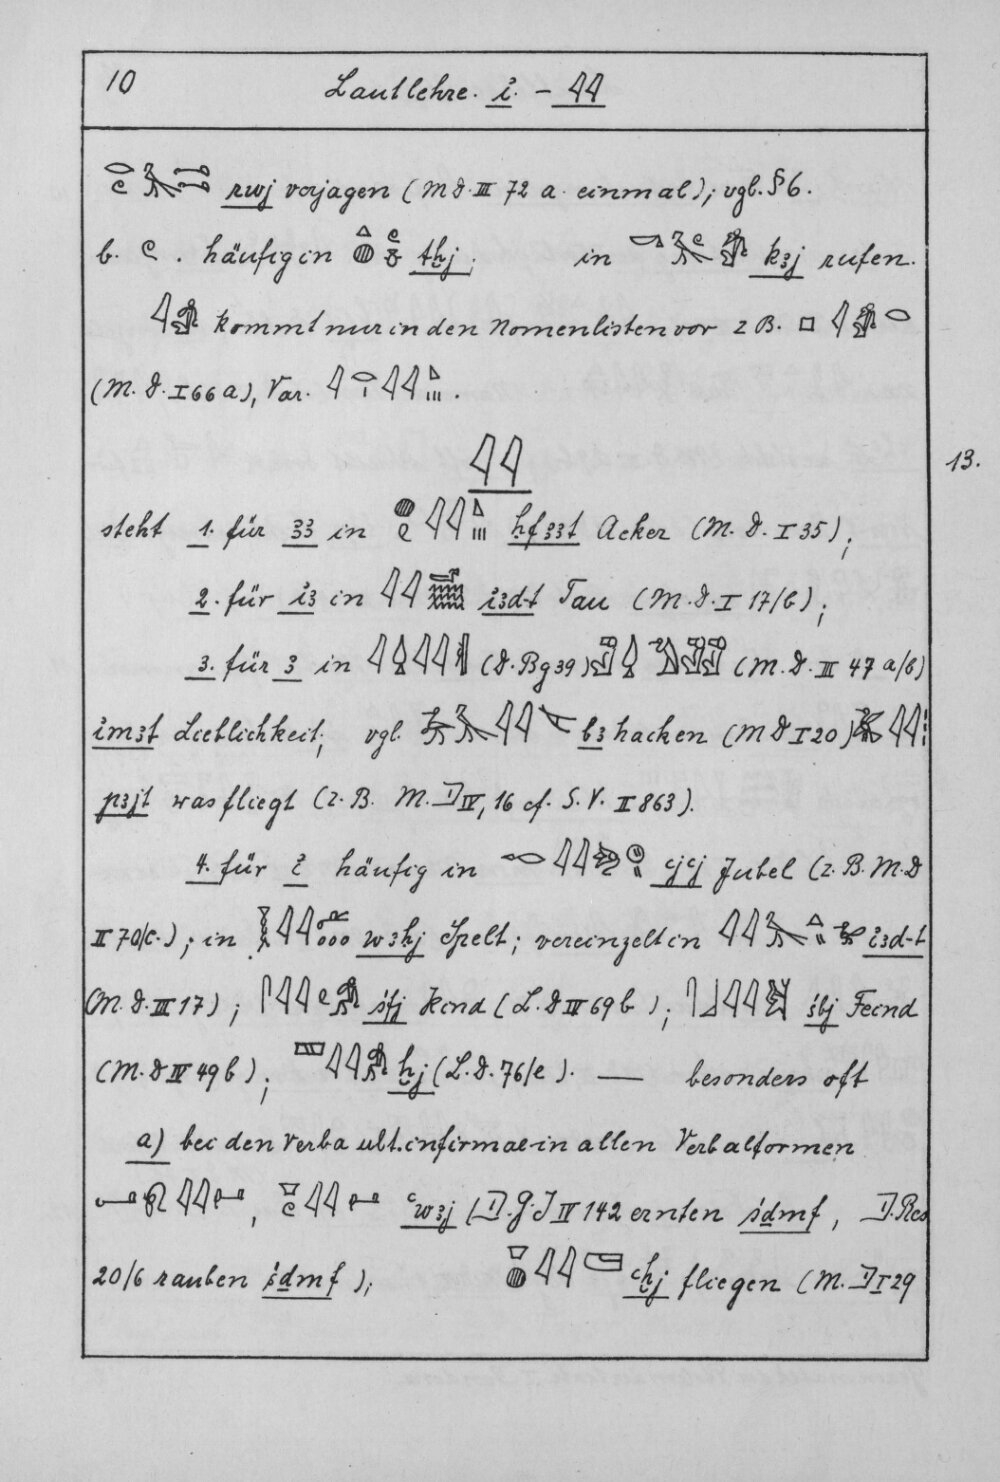 10 Lautlehre. i̓. – 𓇋𓇋
rwj verjagen (M D. III 72 a. einmal); vgl. § 6.
b. 𓏲 . häufig in tḫj; in kꜣj rufen.
𓇋𓀁 kommt nur in den Nomenlisten vor z B. 𓊪𓇋𓀁𓂋
(M. D. I 66 a), Var.
𓇋𓇋
13.
steht 1. für ꜣꜣ in ḫfꜣꜣt Acker (M. D. I 35);
2. für i̓ꜣ in i̓ꜣd-t Tau (M. D. I 17/b);
3. für ꜣ in (D. Bg 39) (M. D. III 47 a/b)
i̓mꜣt Lieblichkeit; vgl. bꜣ hacken (M D I 20)
pꜣjt was fliegt (z. B. M. D IV, 16 cf. S. V. II 863).
4. für i̓ häufig in ꜥjꜥj Jubel (z. B. M. D
II 70/c.); in wꜣḫj Spelt; vereinzelt in i̓ꜣd-t
(M. D. III 17); śfj Kind (L. D IV 69 b); śbj Feind
(M. D IV 49 b); ẖj (L. D. 76/e). — besonders oft
a) bei den Verba ult. infirmae in allen Verbalformen
ꜥwꜣj (D. G. J IV 142 ernten śḏmf, D. Res
20/6 rauben śḏmf); ꜥḫj fliegen (M. D I 29